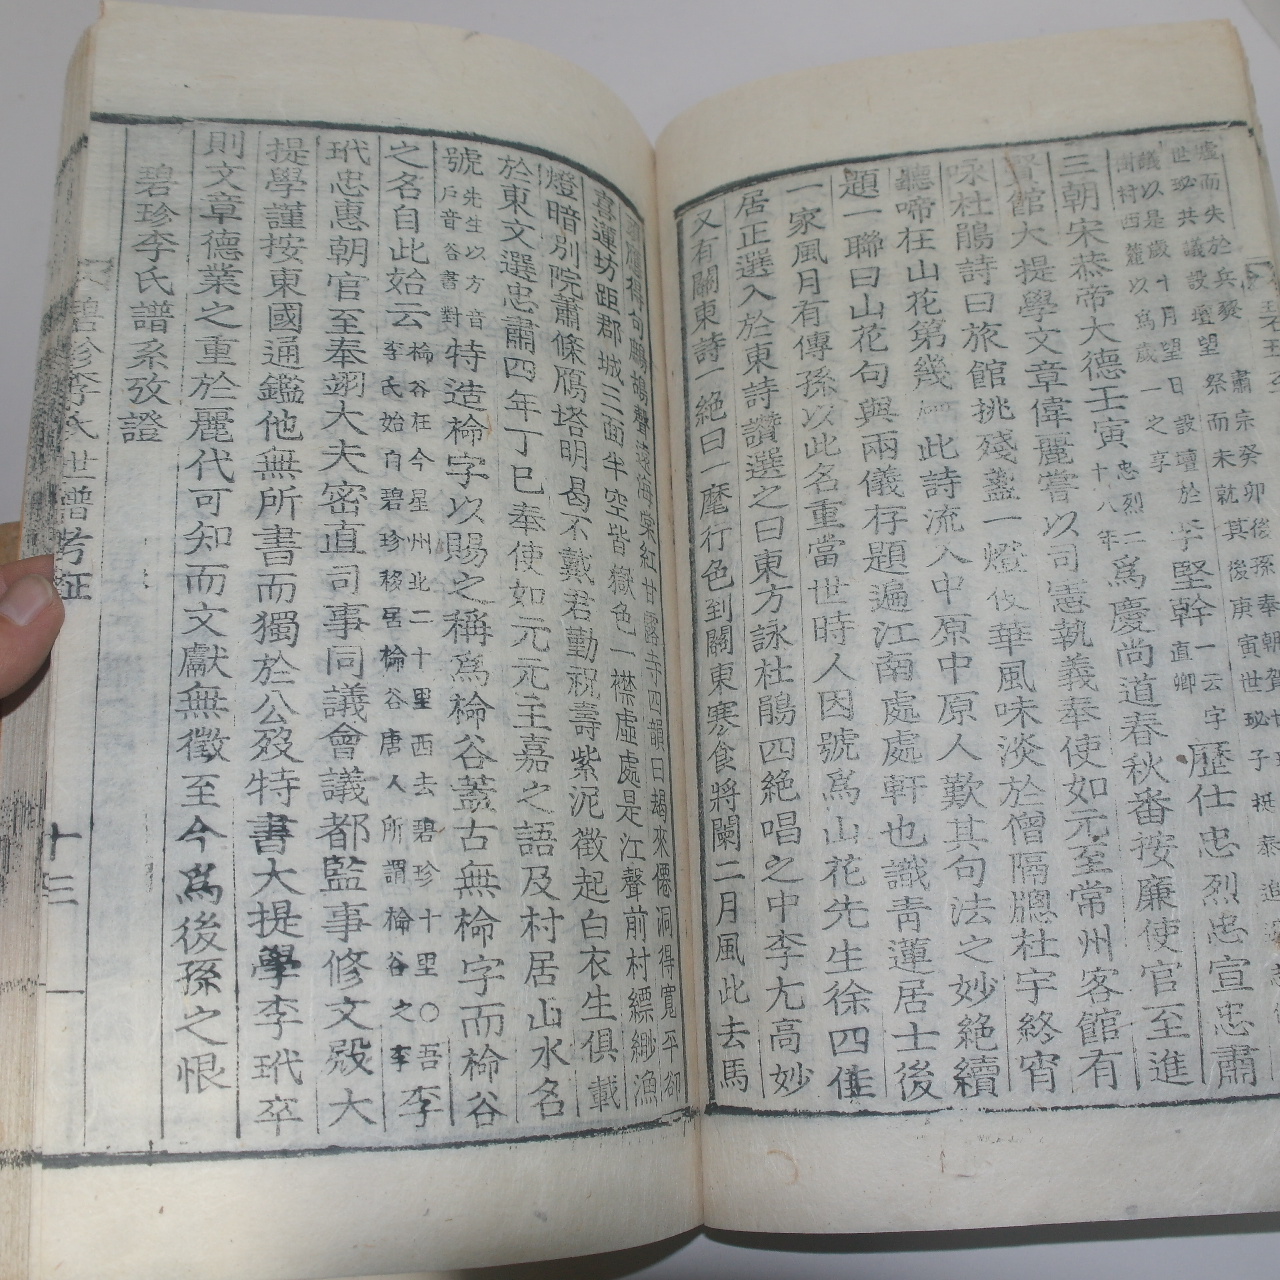 墟而失於兵燹 肅宗癸卯後孫奉朝賀
世珌共議設壇望祭而未就其後庚寅世珌子挺泰進
議以是歲十月望日設壇於
樹村西麓以爲歲一之享 堅幹一云字直卿 歷仕忠烈忠宣忠肅
三朝宋恭帝大德壬寅忠烈二十八年爲慶尚道春秋番按廉使官至進
賢館大提學文章偉麗嘗以司憲執義奉使如元至常州客館有
咏杜鵑詩曰旅館挑殘盞一燈使華風味淡於僧隔牕杜宇終宵
聽啼在山花第幾 此詩流入中原中原人歎其句法之妙絕續
題一聯曰山花句與兩儀存題遍江南處處軒也識青蓮居士後
一家風月有傳孫以此名重當世時人因號爲山花先生徐四佳
居正選入於東詩讚選之曰東方詠杜鵑四絕唱之中李尤高妙
又有關東詩一絕曰一麾行色到關東寒食將闌二月風此去馬
得句鷓鴣聲遠海棠紅甘露寺四韻曰朅來僊洞得寬平
喜蓮坊距郡城三面半空皆嶽色一襟虛處是江聲前村縹緲漁
燈暗別院蕭條鴈塔明曷不戴君勤祝壽紫泥徵起白衣生俱載
於東文選忠肅四年丁巳奉使如元元主嘉之語及村居山水名
號先生以方音戶音谷書對特造棆字以賜之稱爲棆谷蓋古無棆字而棆谷
之名自此始云棆谷在今星州北二十里西去碧珍十里○吾李氏始自碧珍移居棆谷唐人所謂棆谷之李李
玳忠惠朝官至奉翊大夫密直司事同議會議都監事修文殿大
提學謹按東國通鑑他無所書而獨於公歿特書大提學李玳卒
則文章德業之重於麗代可知而文獻無徵至今爲後孫之恨
碧珍李氏譜系攷證
碧珍李氏世譜考証
十三